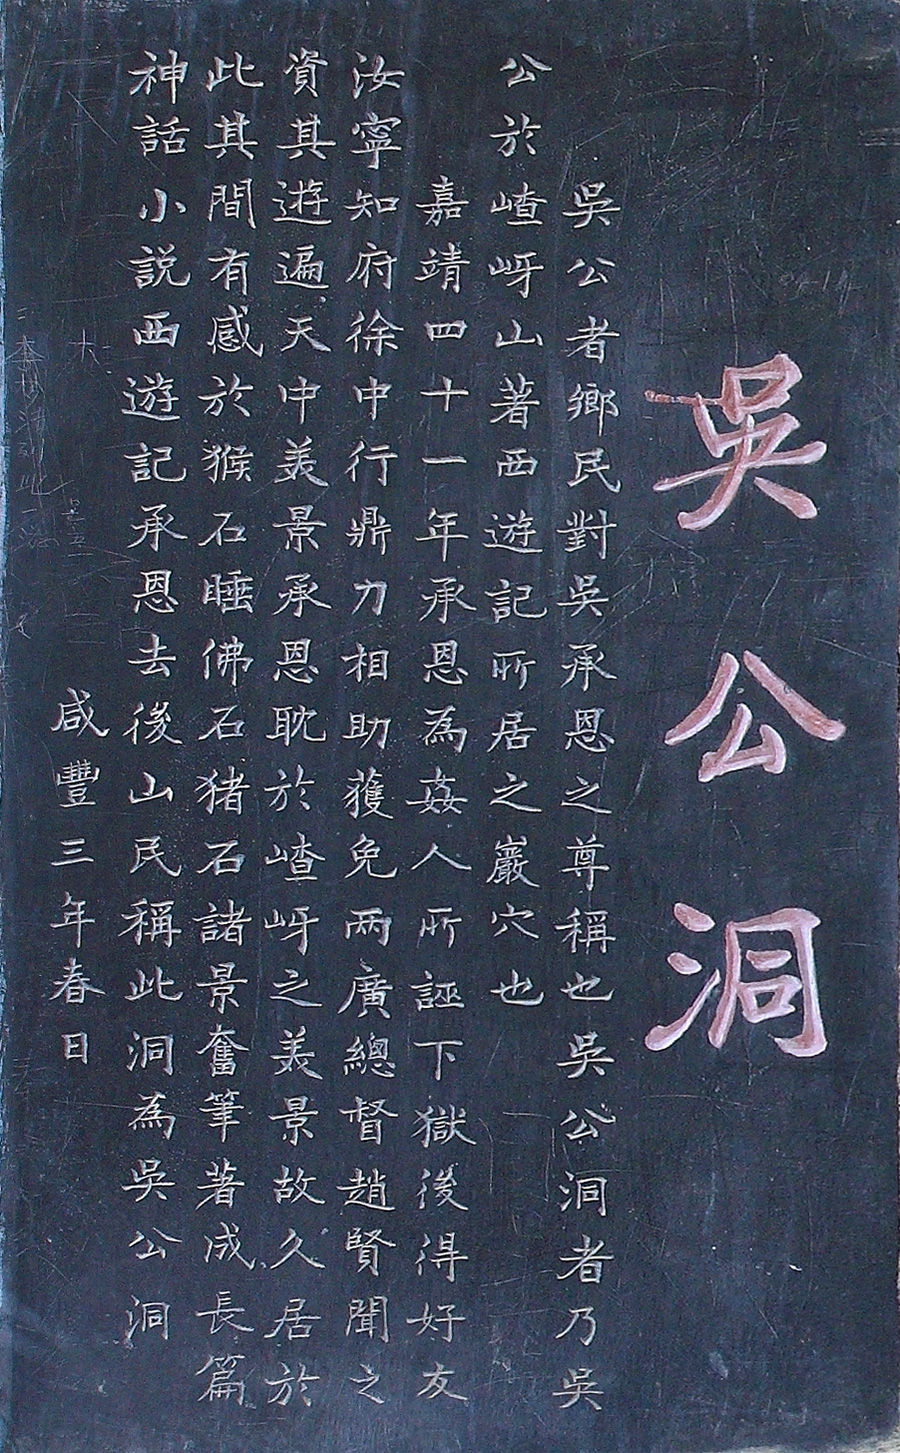 吳公洞
吳公者鄉民對吳承恩之尊稱也吳公洞者乃吳
公於嵖岈山著西遊記所居之巖穴也
嘉靖四十一年承恩為姦人所誣下獄後得好友
汝寧知府徐中行鼎力相助獲免两廣總督趙賢聞之
資其遊遍天中美景承恩耽於嵖岈之美景故久居於
此其間有感於猴石睡佛石猪石諸景奮筆著成長篇
神話小説西遊記承恩去後山民稱此洞為吳公洞
咸豐三年春日